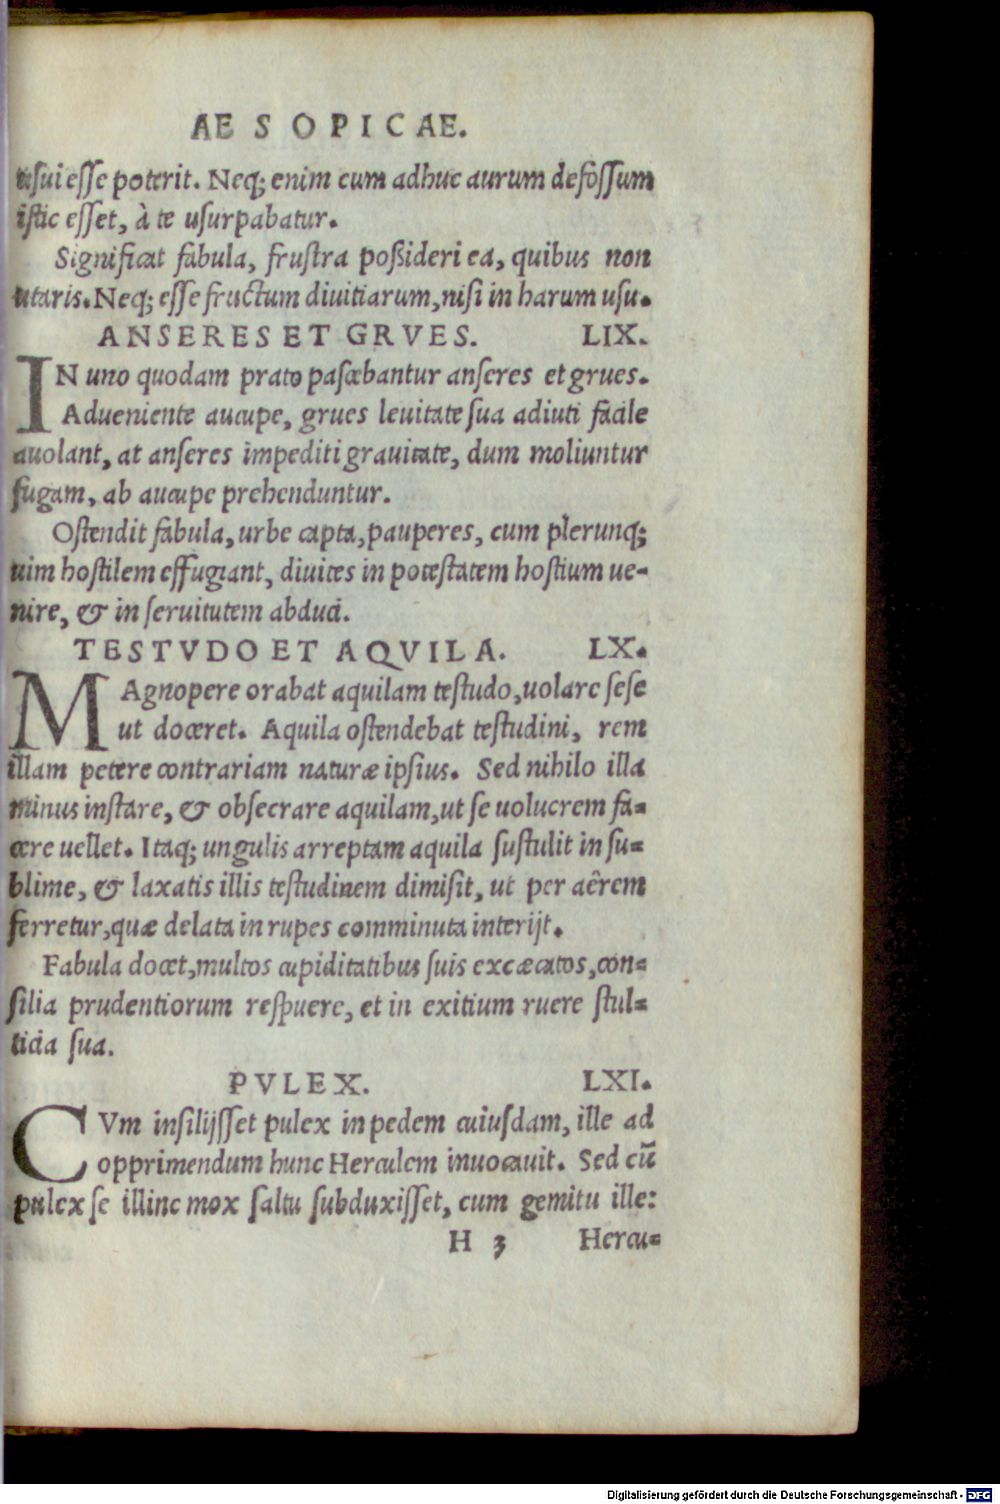 AESOPICAE.
usui esse poterit. Neq; enim cum adhuc aurum defossum
istic esset, à te usurpabatur.
Significat fabula, frustra poßideri ea, quibus non
utaris. Neq; esse fructum diuitiarum, nisi in harum usu.
ANSERES ET GRVES. LIX.
IN uno quodam prato pascebantur anseres et grues.
Adueniente aucupe, grues leuitate sua adiuti facile
auolant, at anseres impediti grauitate, dum moliuntur
fugam, ab aucupe prehenduntur.
Ostendit fabula, urbe capta, pauperes, cum plerunq;
uim hostilem effugiant, diuites in potestatem hostium ue-
nire, & in seruitutem abduci.
TESTVDO ET AQVILA. LX.
MAgnopere orabat aquilam testudo, uolare sese
ut doceret. Aquila ostendebat testudini, rem
illam petere contrariam naturæ ipsius. Sed nihilo illa
minus instare, & obsecrare aquilam, ut se uolucrem fa-
cere uellet. Itaq; ungulis arreptam aquila sustulit in su-
blime, & laxatis illis testudinem dimisit, ut per aêrem
ferretur, quæ delata in rupes comminuta interijt.
Fabula docet, multos cupiditatibus suis excæcatos, con-
silia prudentiorum respuere, et in exitium ruere stul-
ticia sua.
PVLEX. LXI.
CVm insilijsset pulex in pedem cuiusdam, ille ad
opprimendum hunc Herculem inuocauit. Sed cũ
pulex se illinc mox saltu subduxisset, cum gemitu ille:
H 3 Hercu-
Digitalisierung gefördert durch die Deutsche Forschungsgemeinschaft - DFG